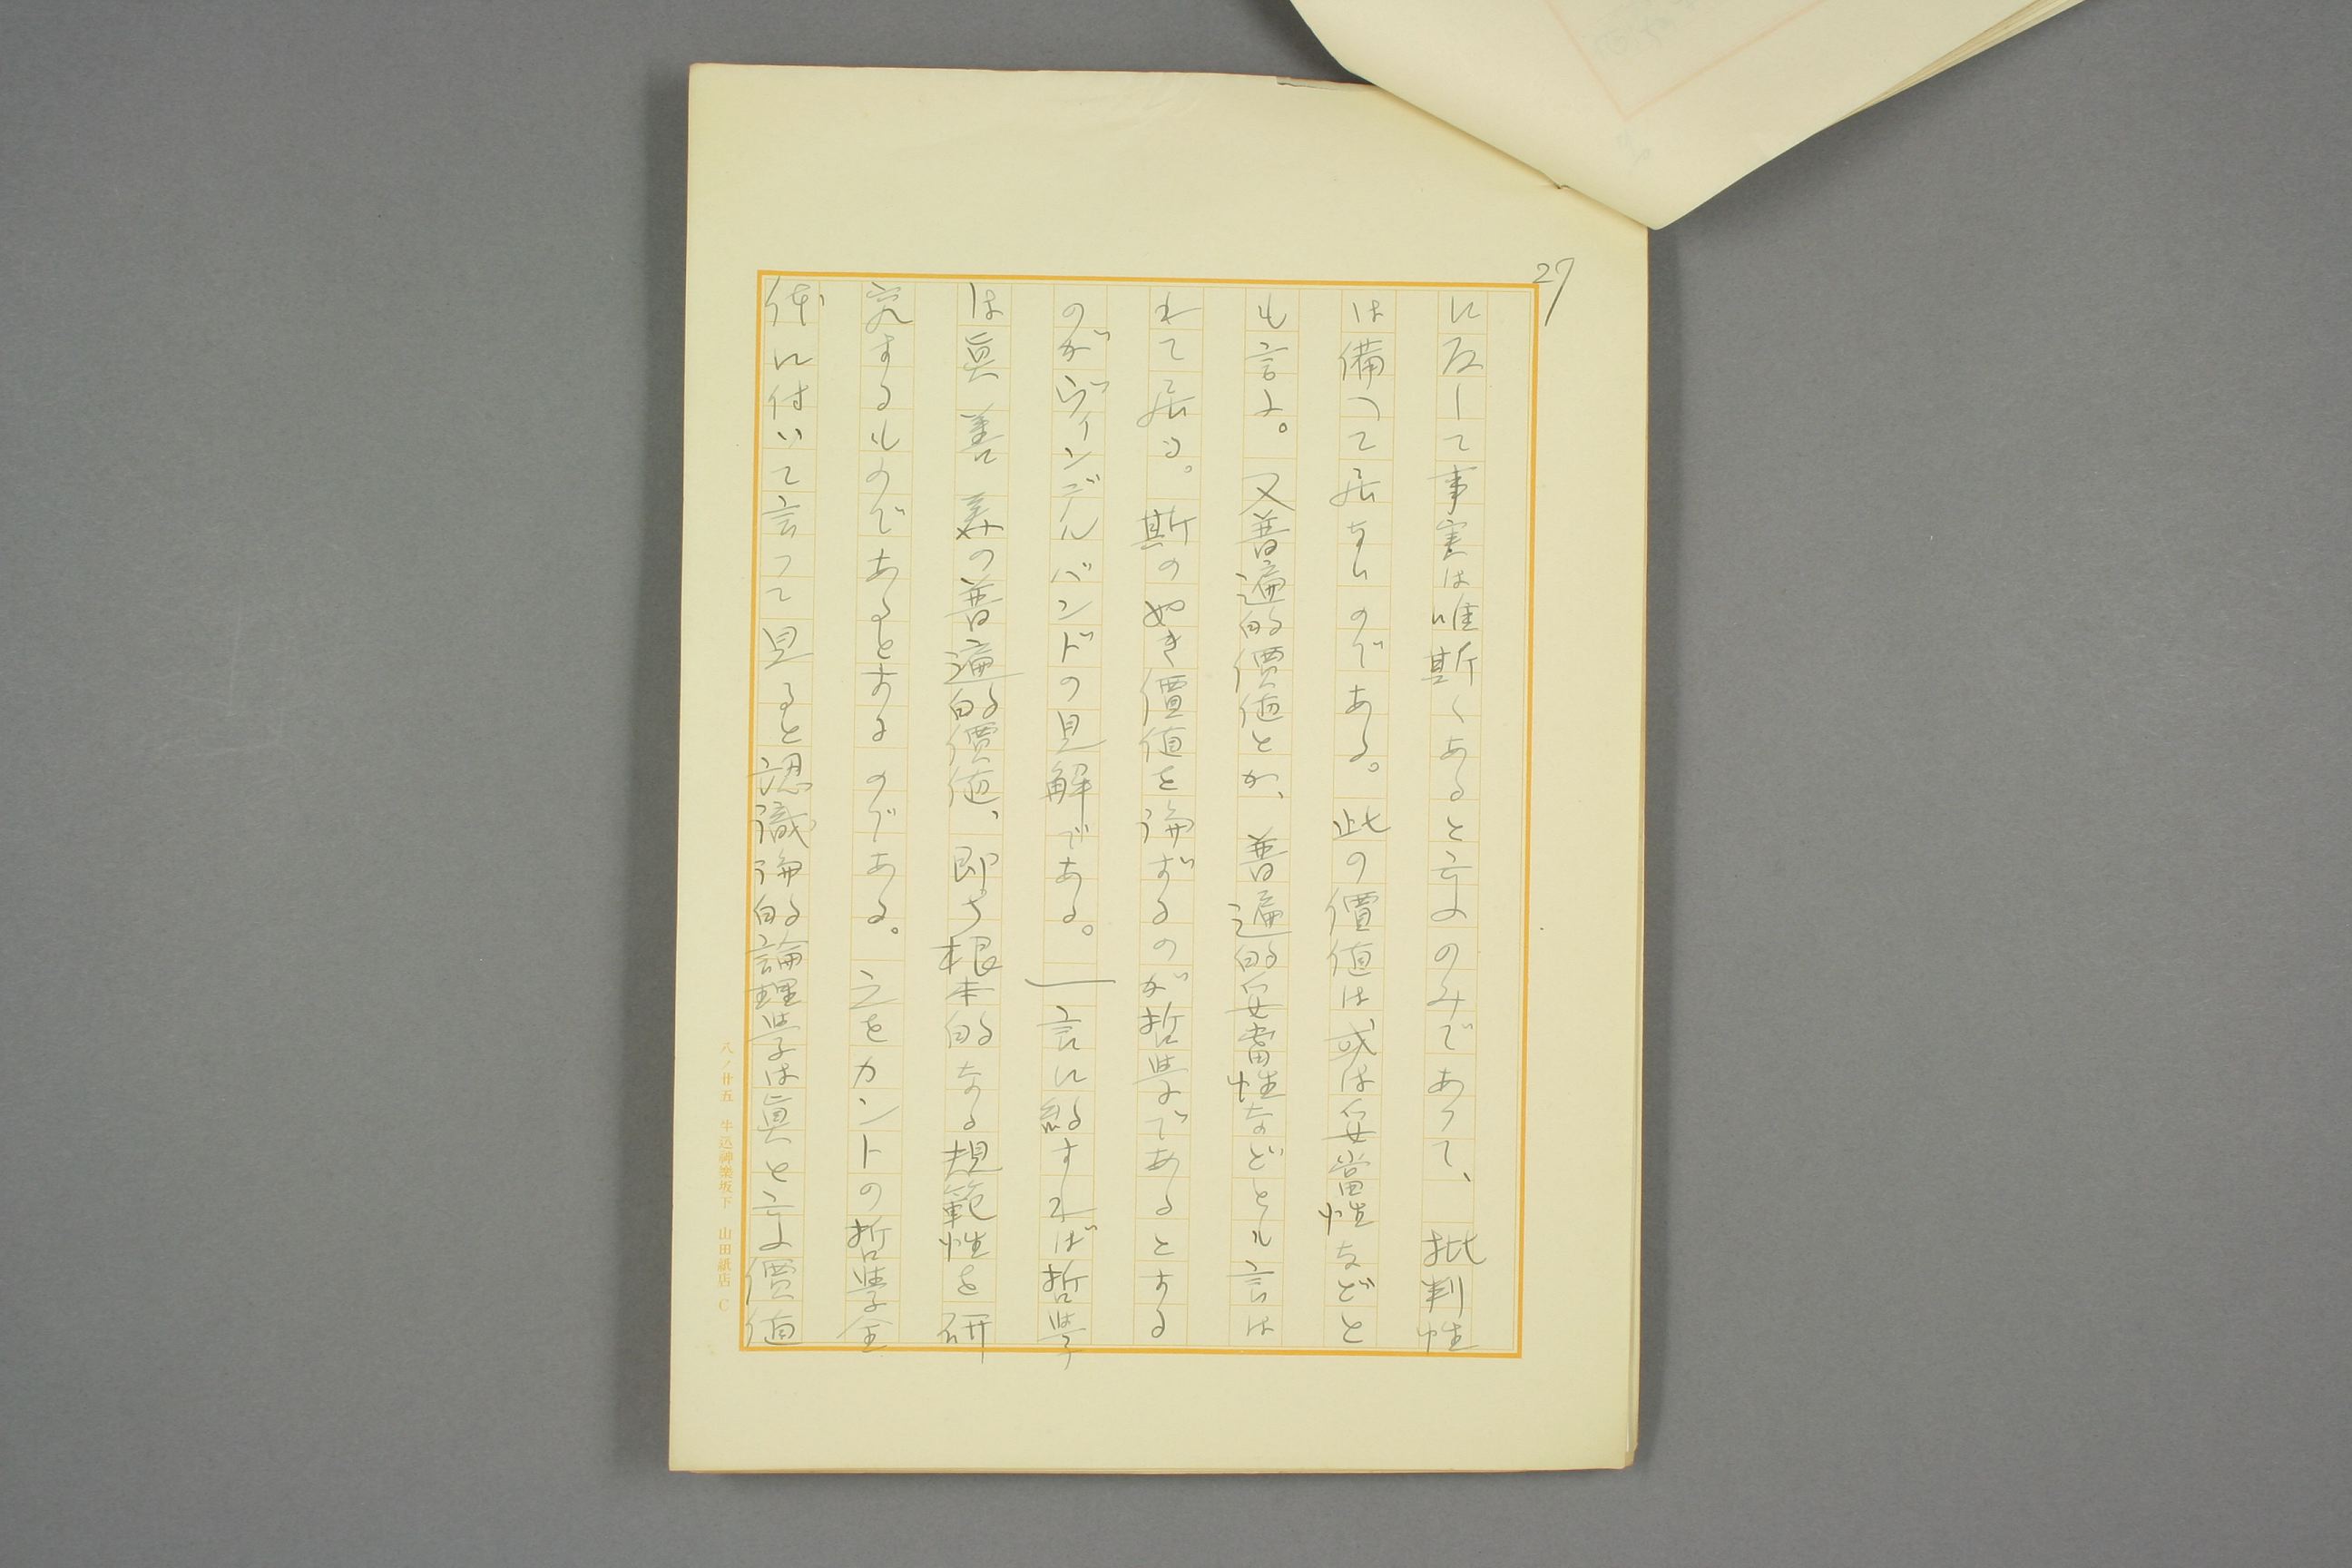 27
に反して事実は唯斯くあると言ふのみであつて、批判性
は備つて居ないのである。此の價値は或は妥當性などと
も言ふ。又普遍的價値とか、普遍的妥當性などとも言は
れて居る。斯の如き價値を論ずるのが哲学であるとする
のがヴィンデルバンドの見解である。一言に約すれば哲学
は眞善美の普遍的價値、即ち根本的なる規範性を研
究するものであるとするのである。之をカントの哲学全
体に付いて言つて見ると認識論的論理学は眞と言ふ價値
八ノ廿五 牛込神樂坂下 山田紙店 C